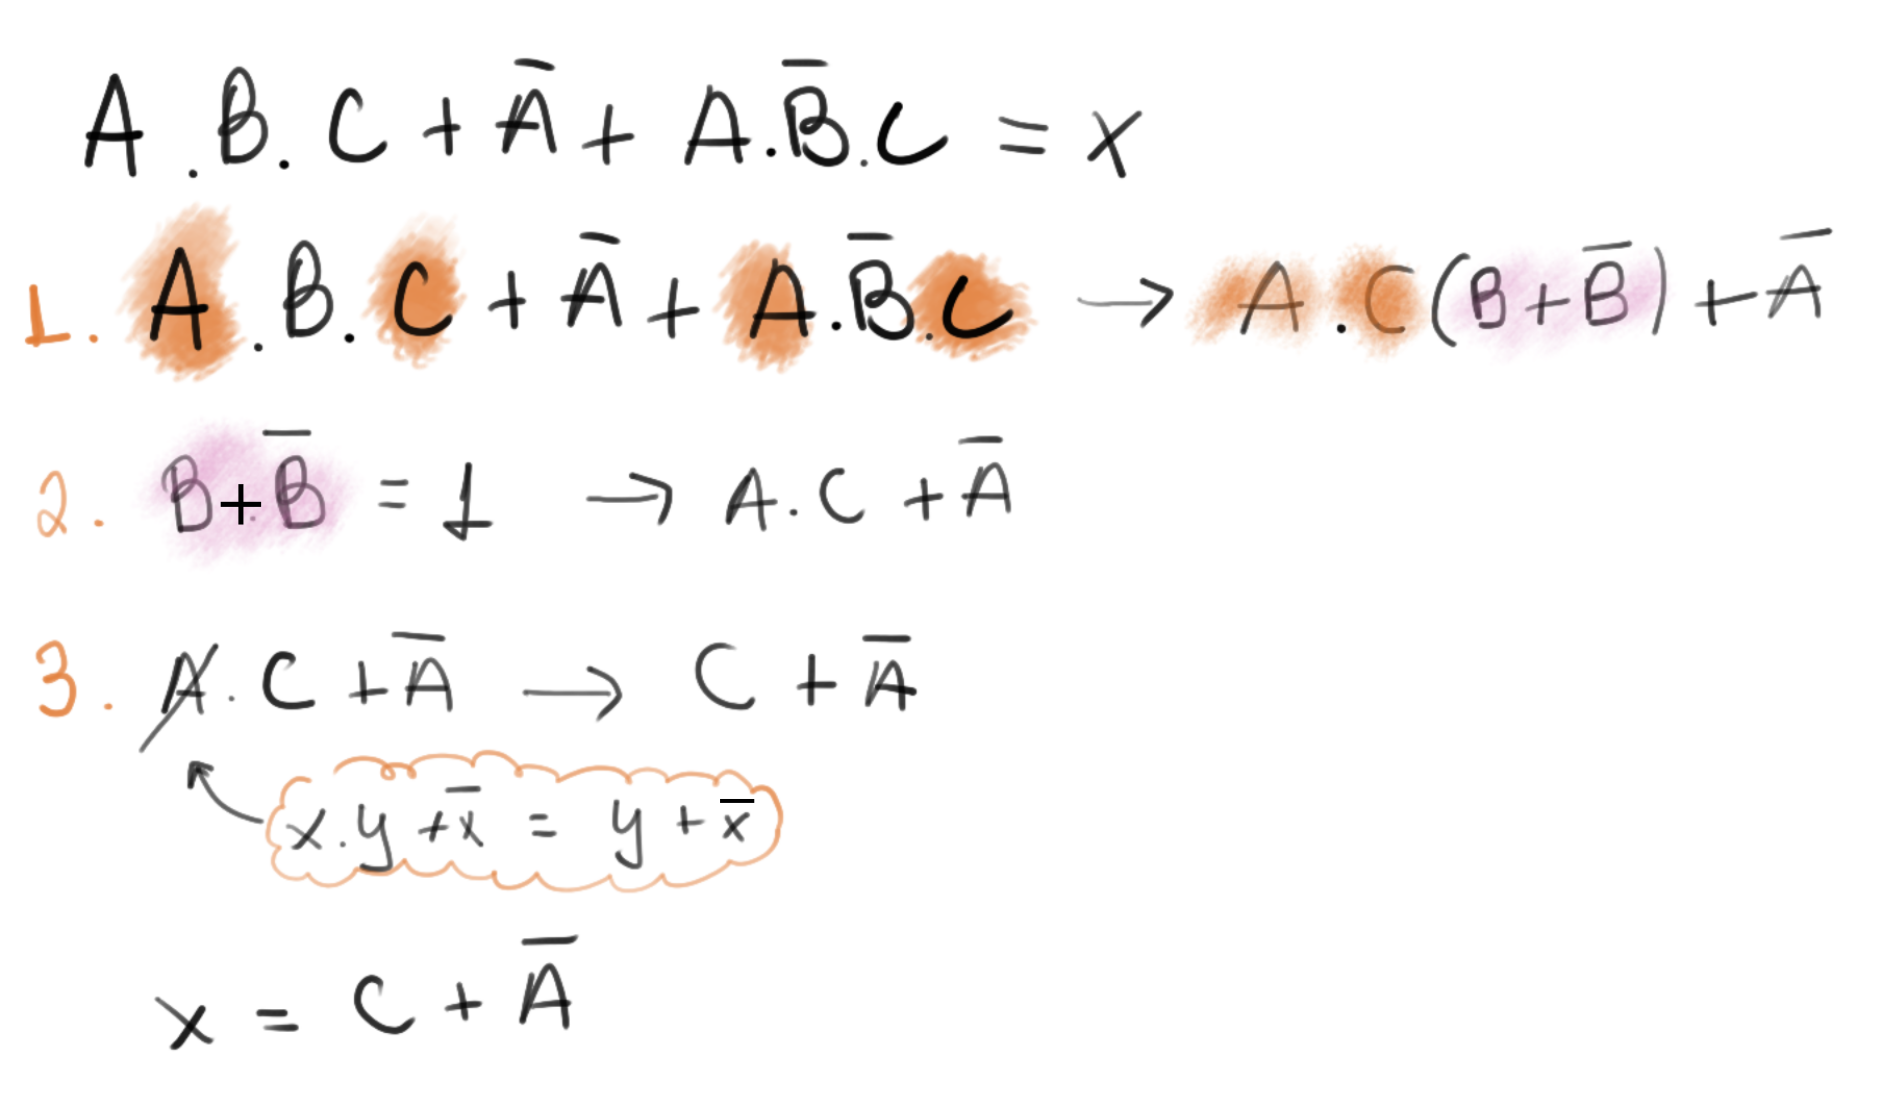 A . B . C + A̅ + A . B̅ . C = x
1. A . B . C + A̅ + A . B̅ . C → A . C (B + B̅) + A̅
2. B + B̅ = 1 → A . C + A̅
3. A . C + A̅ → C + A̅
x . y + x̅ = y + x̅
x = C + A̅